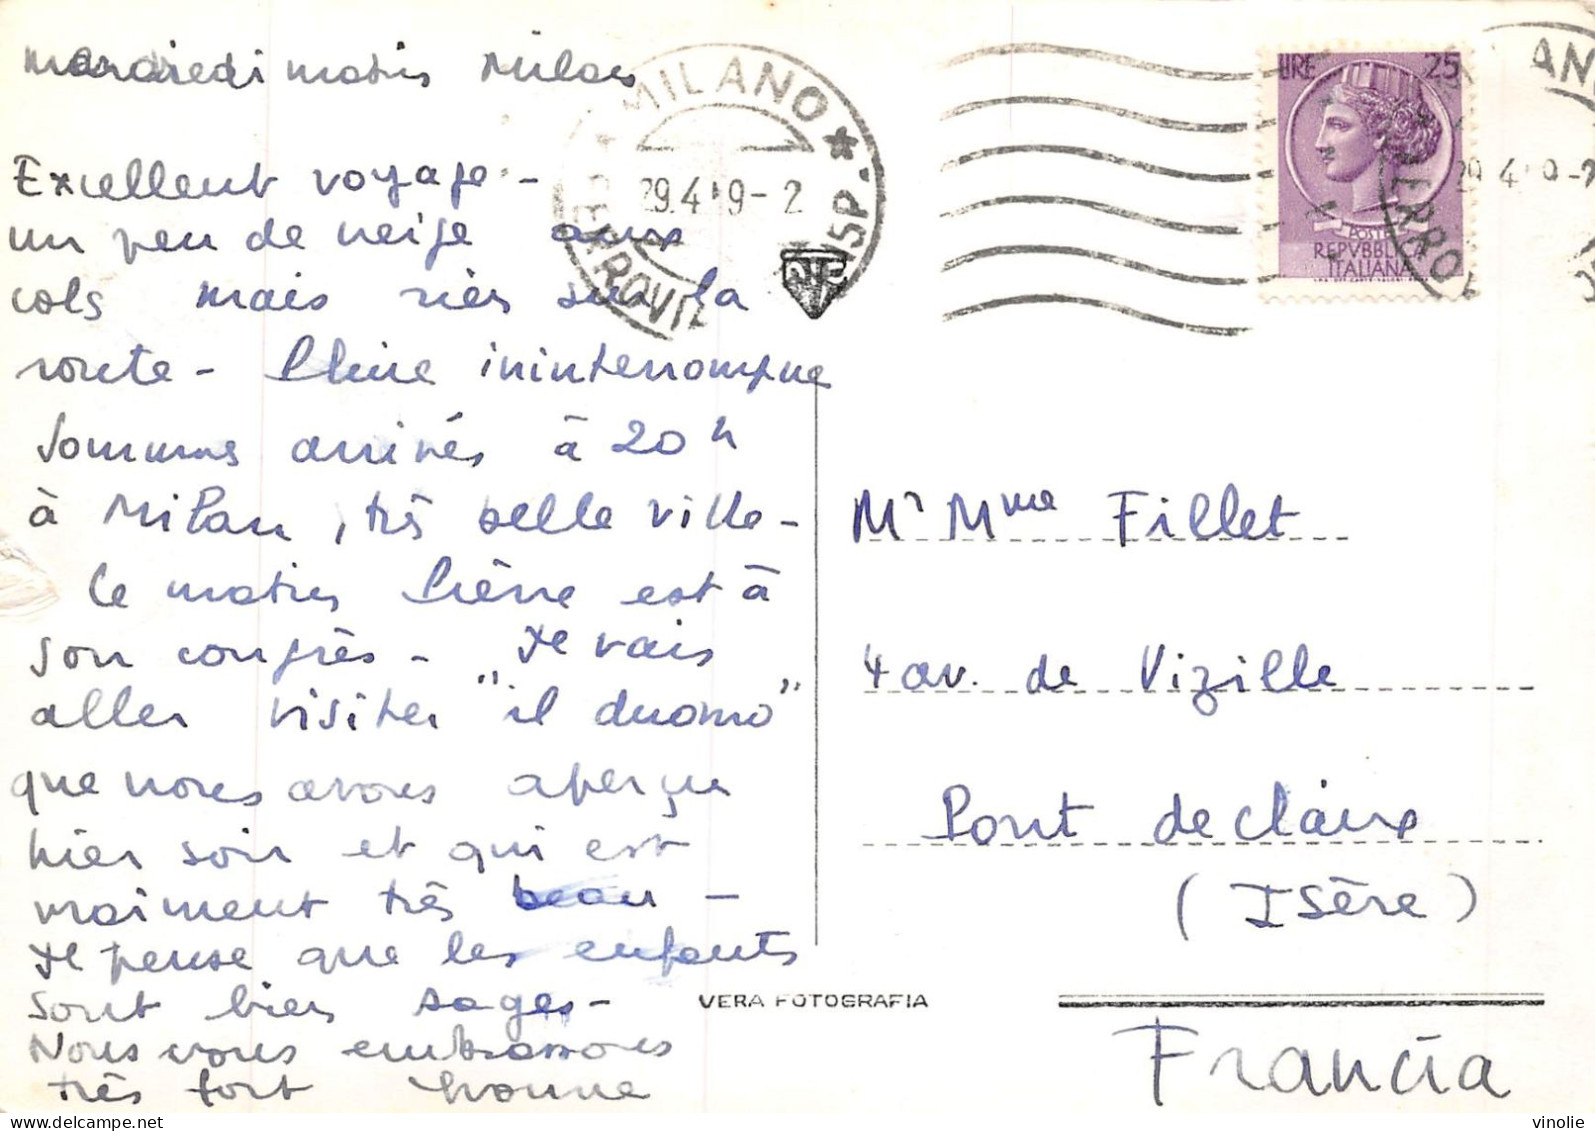 mercredi matin Milan
Excellent voyage -
un peu de neige aux
cols mais rien sur la
route - Pluie ininterrompue
Sommes arrivés à 20h
à Milan, très belle ville -
Ce matin Pierre est à
son congrès - Je vais
aller visiter "il duomo"
que nous avons aperçu
hier soir et qui est
vraiment très beau -
Je pense que les enfants
sont bien sages -
Nous vous embrassons
très fort
MILANO * FERROVIA
29.4 9-2
LIRE 25
POSTE
REPVBBLICA
ITALIANA
Mr Mme Fillet
4 av. de Vizille
Pont de Claix
(Isère)
Francia
VERA FOTOGRAFIA
vinolie